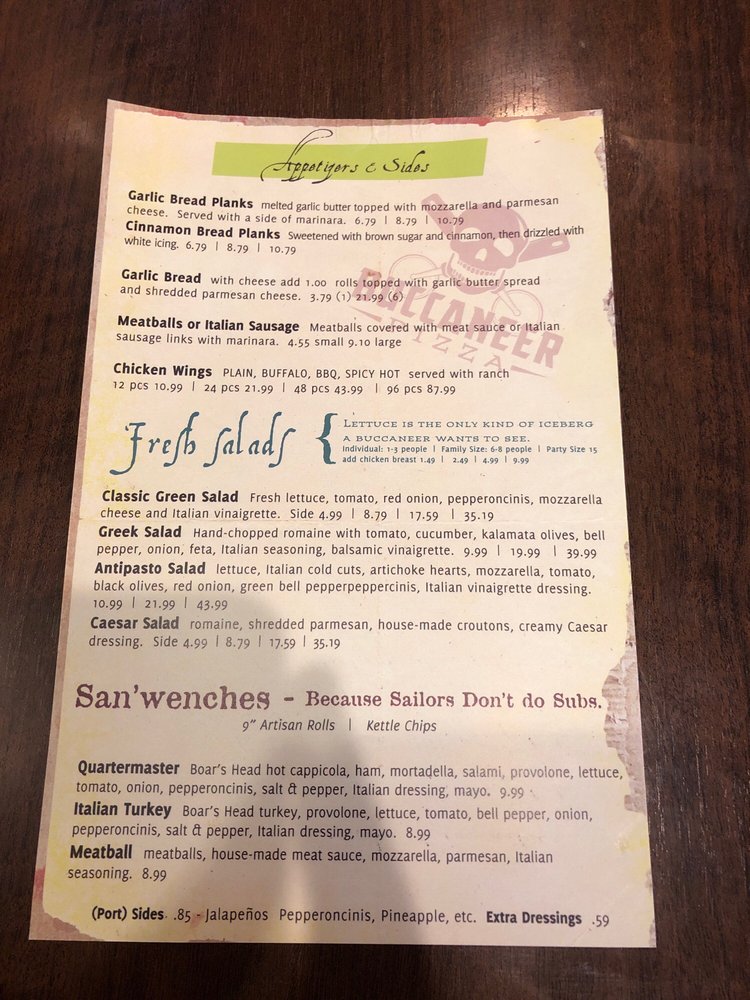 Appetizers & Sides
Garlic Bread Planks melted garlic butter topped with mozzarella and parmesan
cheese. Served with a side of marinara. 6.79 | 8.79 | 10.79
Cinnamon Bread Planks Sweetened with brown sugar and cinnamon, then drizzled with
white icing. 6.79 | 8.79 | 10.79
Garlic Bread with cheese add 1.00 rolls topped with garlic butter spread
and shredded parmesan cheese. 3.79 (1) 21.99 (6)
BUCCANEER
PIZZA
Meatballs or Italian Sausage Meatballs covered with meat sauce or Italian
sausage links with marinara. 4.55 small 9.10 large
Chicken Wings PLAIN, BUFFALO, BBQ, SPICY HOT served with ranch
12 pcs 10.99 | 24 pcs 21.99 | 48 pcs 43.99 | 96 pcs 87.99
Fresh Salads {
Lettuce is the only kind of iceberg
a buccaneer wants to see.
Individual: 1-3 people | Family Size: 6-8 people | Party Size 15
add chicken breast 1.49 | 2.49 | 4.99 | 9.99
Classic Green Salad Fresh lettuce, tomato, red onion, pepperoncinis, mozzarella
cheese and Italian vinaigrette. Side 4.99 | 8.79 | 17.59 | 35.19
Greek Salad Hand-chopped romaine with tomato, cucumber, kalamata olives, bell
pepper, onion, feta, Italian seasoning, balsamic vinaigrette. 9.99 | 19.99 | 39.99
Antipasto Salad lettuce, Italian cold cuts, artichoke hearts, mozzarella, tomato,
black olives, red onion, green bell pepperpeppercinis, Italian vinaigrette dressing.
10.99 | 21.99 | 43.99
Caesar Salad romaine, shredded parmesan, house-made croutons, creamy Caesar
dressing. Side 4.99 | 8.79 | 17.59 | 35.19
San'wenches - Because Sailors Don't do Subs.
9" Artisan Rolls | Kettle Chips
Quartermaster Boar's Head hot cappicola, ham, mortadella, salami, provolone, lettuce,
tomato, onion, pepperoncinis, salt & pepper, Italian dressing, mayo. 9.99
Italian Turkey Boar's Head turkey, provolone, lettuce, tomato, bell pepper, onion,
pepperoncinis, salt & pepper, Italian dressing, mayo. 8.99
Meatball meatballs, house-made meat sauce, mozzarella, parmesan, Italian
seasoning. 8.99
(Port) Sides .85 - Jalapeños Pepperoncinis, Pineapple, etc. Extra Dressings .59